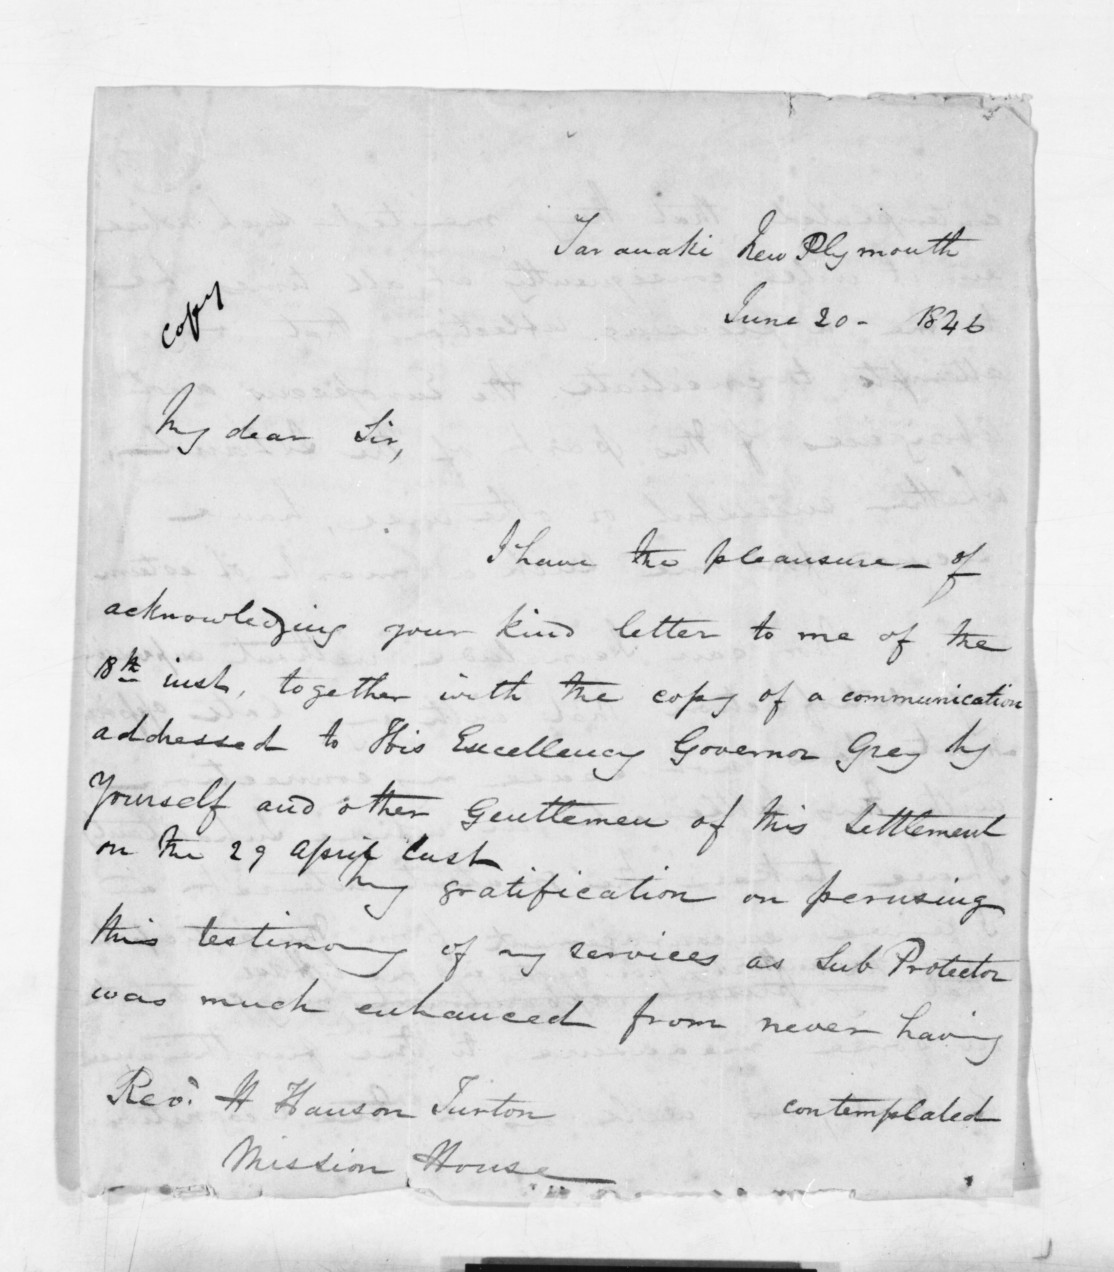 Taranaki New Plymouth
June 20 - 1846
copy
My dear Sir,
I have the pleausure - of
acknowledging your kind letter to me of the
18th inst, together with the copy of a communication
addressed to His Excellency Governor Grey by
Yourself and other Gentlemen of this Settlement
on the 29 April last
My gratification on perusing
this testimony of my services as Sub Protector
was much enhanced from never having
contemplated
Revd. H Hanson Turton
Mission House